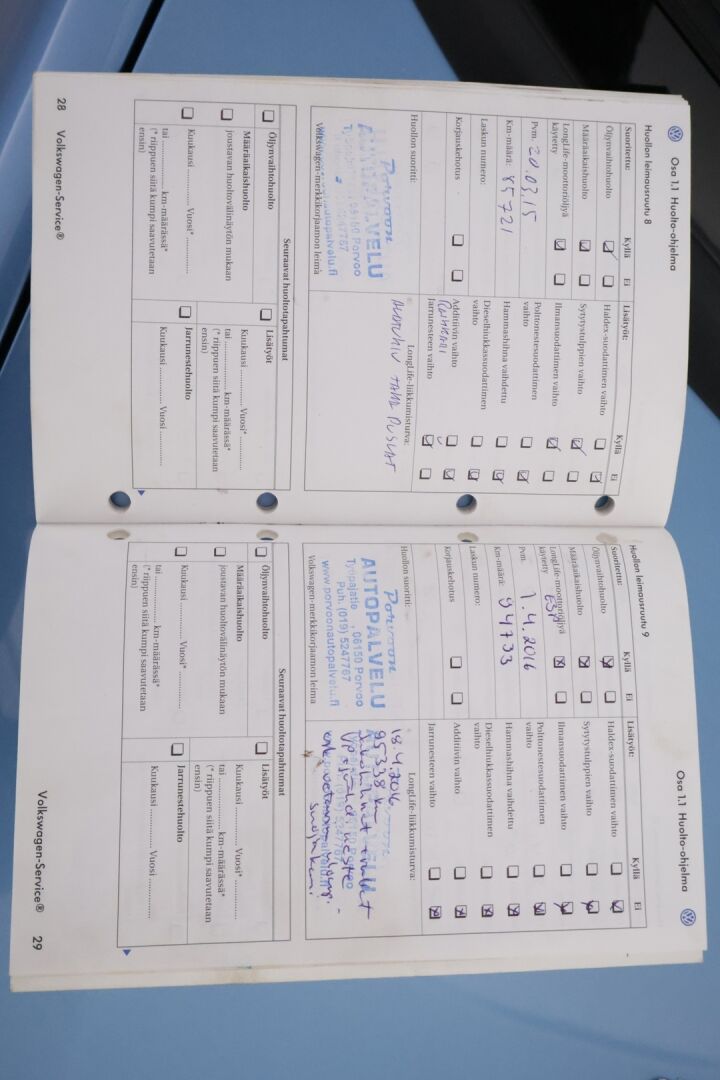 Osa 1.1 Huolto-ohjelma
Huollon leimausruutu 8
Suoritettu: Kyllä Ei
Öljynvaihtohuolto
Määräaikaishuolto
LongLife-moottoriöljyä
käytetty
Pvm. 20.03.15
Km-määrä: 85721
Laskun numero:
Korjauskehotus
Huollon suoritti:
Porvoon
AUTOPALVELU
06150 Porvoo
Volkswagen-merkkikorjaamon leima
Lisätyöt: Kyllä Ei
Haldex-suodattimen vaihto
Sytytystulppien vaihto
Ilmansuodattimen vaihto
Polttonestesuodattimen
vaihto
Hammashihna vaihdettu
Dieselhiukkassuodattimen
vaihto
Additiivin vaihto
Jarrunesteen vaihto
LongLife-liikkumisturva:
Seuraavat huoltotapahtumat
Öljynvaihtohuolto
Määräaikaishuolto
joustavan huoltovälinäytön mukaan
Kuukausi ............. Vuosi* .............
tai ............. km-määrässä*
(* riippuen siitä kumpi saavutetaan
ensin)
Lisätyöt
Kuukausi ............. Vuosi* .............
tai ............. km-määrässä*
(* riippuen siitä kumpi saavutetaan
ensin)
Jarrunestehuolto
Kuukausi ............. Vuosi .............
28 Volkswagen-Service®
Osa 1.1 Huolto-ohjelma
Huollon leimausruutu 9
Suoritettu: Kyllä Ei
Öljynvaihtohuolto
Määräaikaishuolto
LongLife-moottoriöljyä
käytetty
Pvm. 1.4.2016
Km-määrä: 94733
Laskun numero:
Korjauskehotus
Huollon suoritti:
Porvoon
AUTOPALVELU
Työpajatie , 06150 Porvoo
Puh. (019) 5247767
www.porvoonautopalvelu.fi
Volkswagen-merkkikorjaamon leima
Lisätyöt: Kyllä Ei
Haldex-suodattimen vaihto
Sytytystulppien vaihto
Ilmansuodattimen vaihto
Polttonestesuodattimen
vaihto
Hammashihna vaihdettu
Dieselhiukkassuodattimen
vaihto
Additiivin vaihto
Jarrunesteen vaihto
LongLife-liikkumisturva:
18.4.2016
95338 km
Seuraavat huoltotapahtumat
Öljynvaihtohuolto
Määräaikaishuolto
joustavan huoltovälinäytön mukaan
Kuukausi ............. Vuosi* .............
tai ............. km-määrässä*
(* riippuen siitä kumpi saavutetaan
ensin)
Lisätyöt
Kuukausi ............. Vuosi* .............
tai ............. km-määrässä*
(* riippuen siitä kumpi saavutetaan
ensin)
Jarrunestehuolto
Kuukausi ............. Vuosi .............
Volkswagen-Service® 29